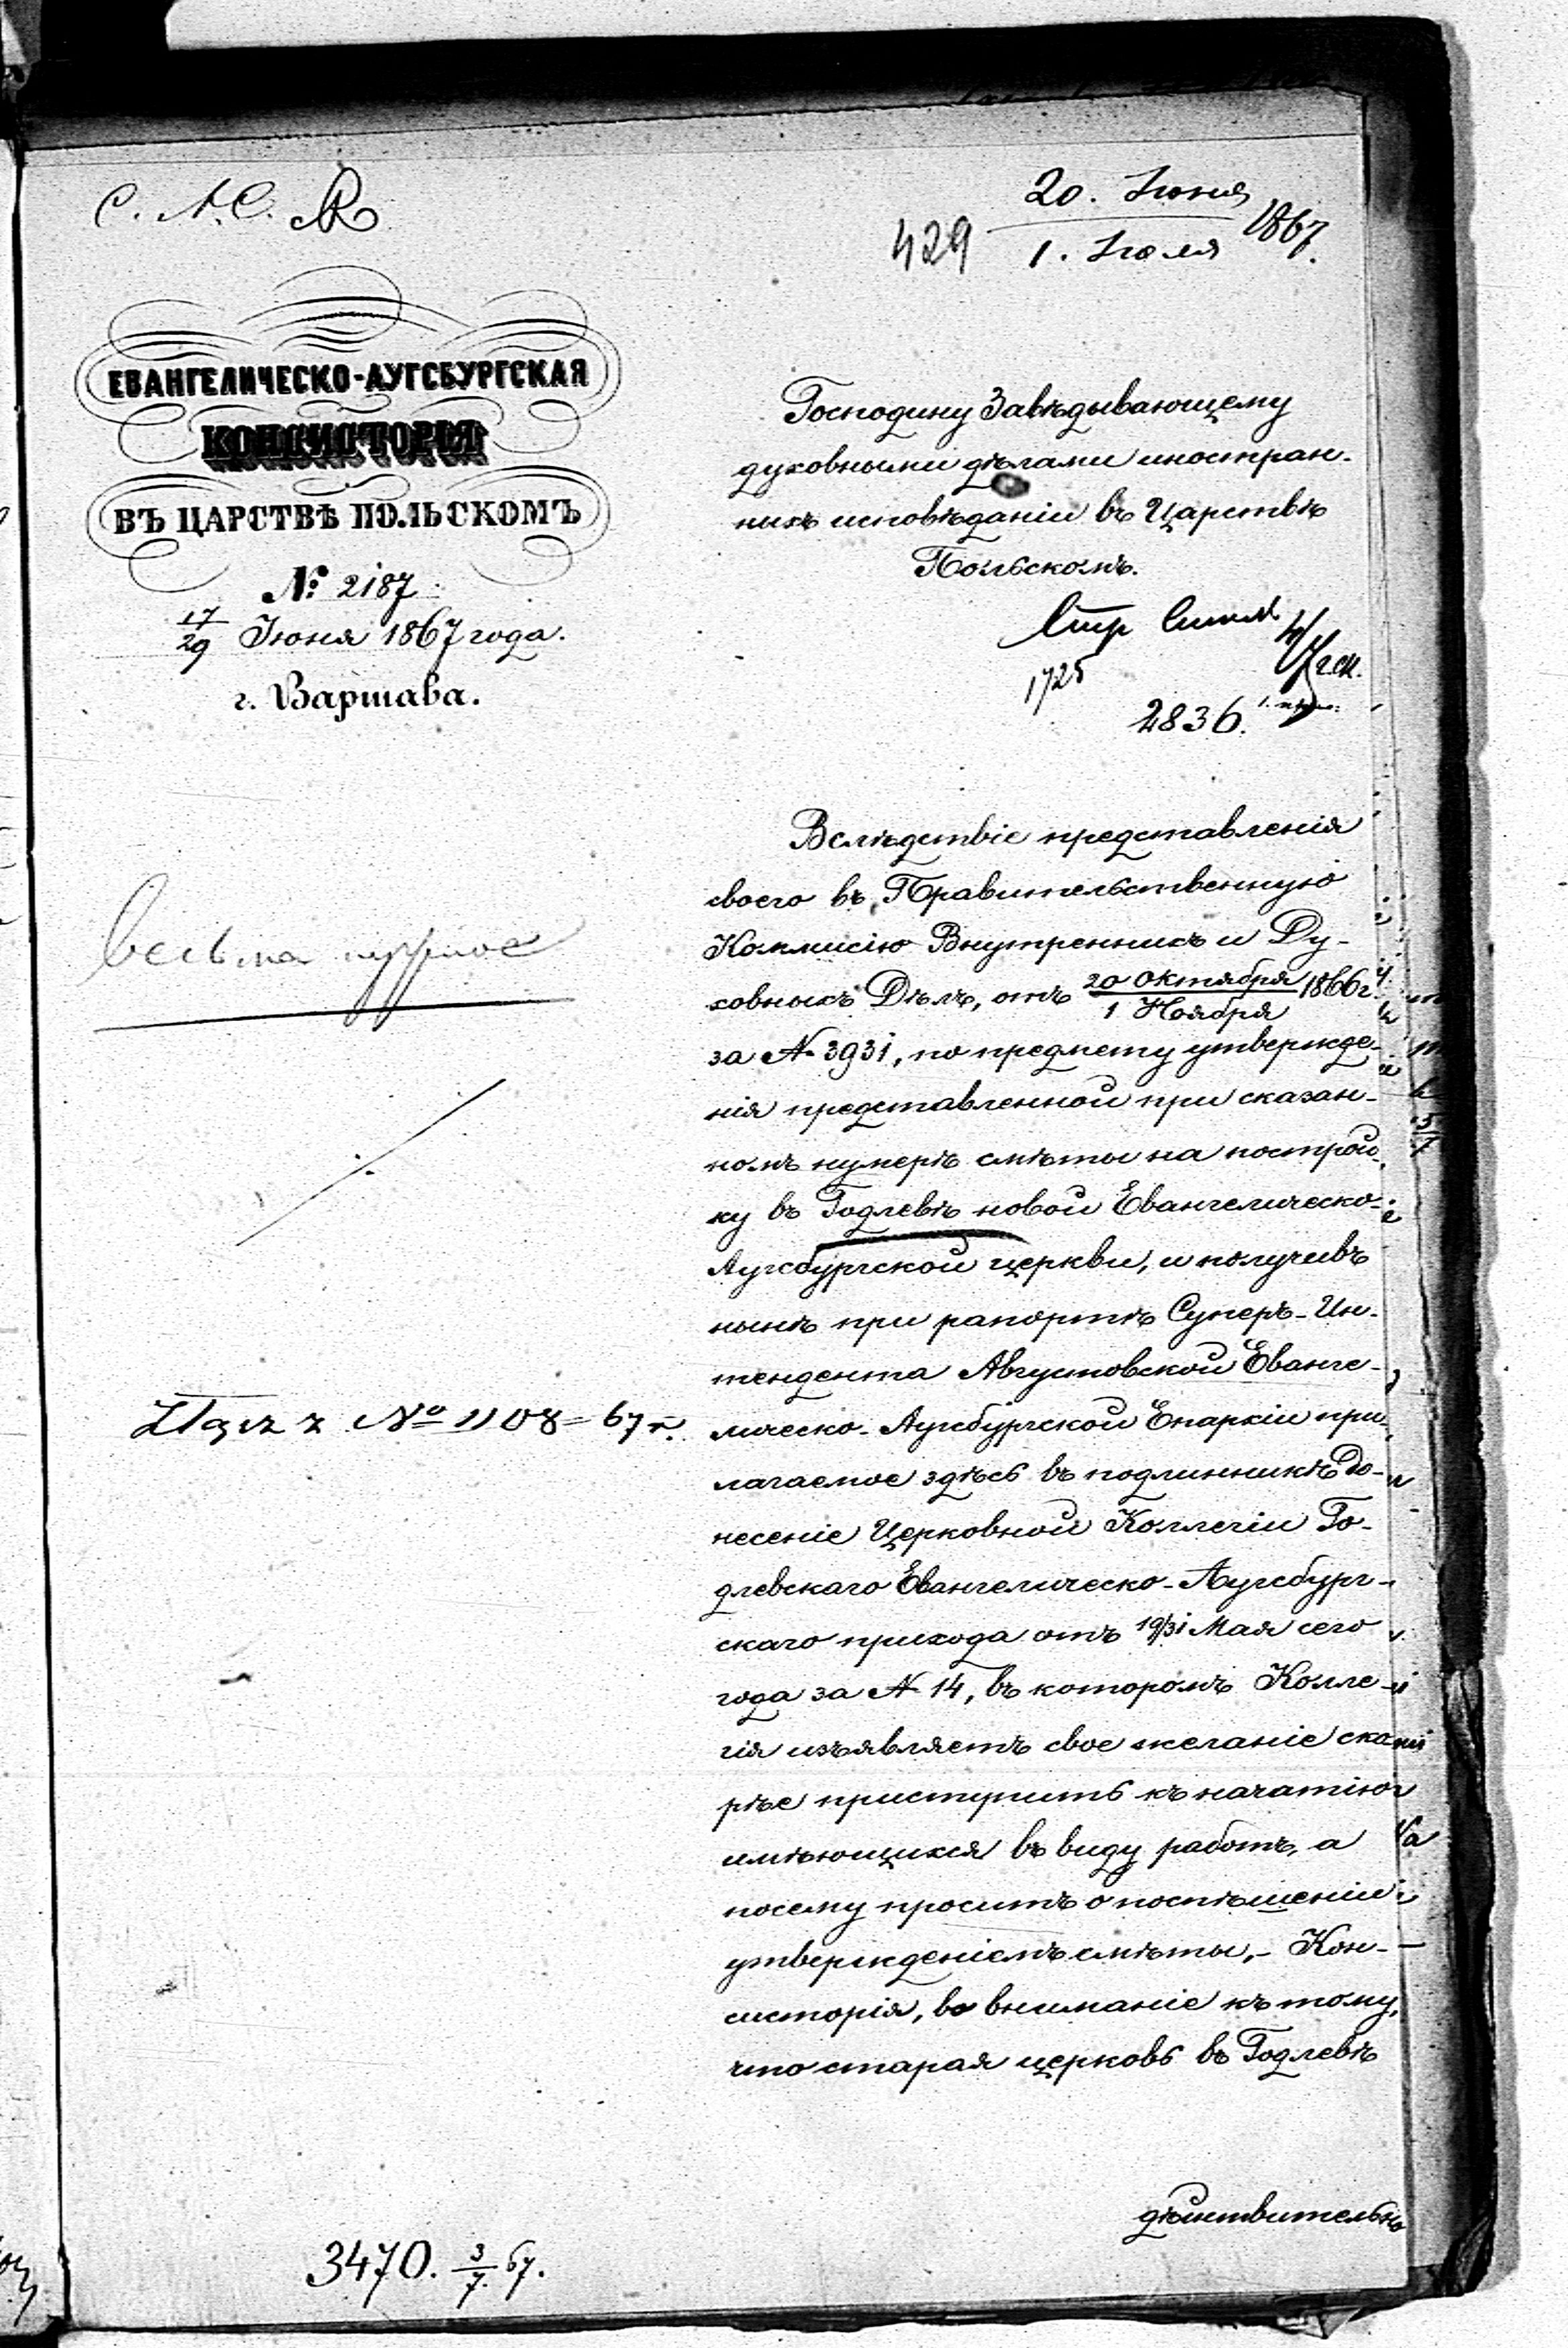 С. А. С.
20. Іюня
1. Іюля 1867.
429
ЕВАНГЕЛИЧЕСКО-АУГСБУРГСКАЯ
КОНСИСТОРІЯ
ВЪ ЦАРСТВѢ ПОЛЬСКОМЪ
№ 2187
17/29 Іюня 1867 года.
г. Варшава.
Господину Завѣдывающему
духовными дѣлами иностран-
ныхъ исповѣданій въ Царствѣ
Польскомъ.
1725
2836.
Вслѣдствіе представленія
своего въ Правительственную
Коммисію Внутреннихъ и Ду-
ховныхъ Дѣлъ, отъ 20 Октября/1 Ноября 1866 г.
за № 3931, по предмету утвержде-
нія представленной при сказан-
номъ нумерѣ смѣты на построй-
ку въ Годлевѣ новой Евангелическо-
Аугсбургской церкви, и получивъ
нынѣ при рапортѣ Суперъ-Ин-
тендента Августовской Еванге-
лическо-Аугсбургской Епархіи при-
лагаемое здѣсь въ подлинникѣ до-
несеніе Церковной Коллегіи Го-
длевскаго Евангелическо-Аугсбург-
скаго прихода отъ 19/31 Мая сего
года за № 14, въ которомъ Колле-
гія изъявляетъ свое желаніе ско-
рѣе приступить къ начатію
имѣющихся въ виду работъ, а
посему проситъ о поспѣшеніи
утвержденіемъ смѣты,- Кон-
систорія, во вниманіе къ тому,
что старая церковь въ Годлевѣ
дѣйствительно
весьма нужное
№ 1108 - 67 г.
3470. 3/7. 67.